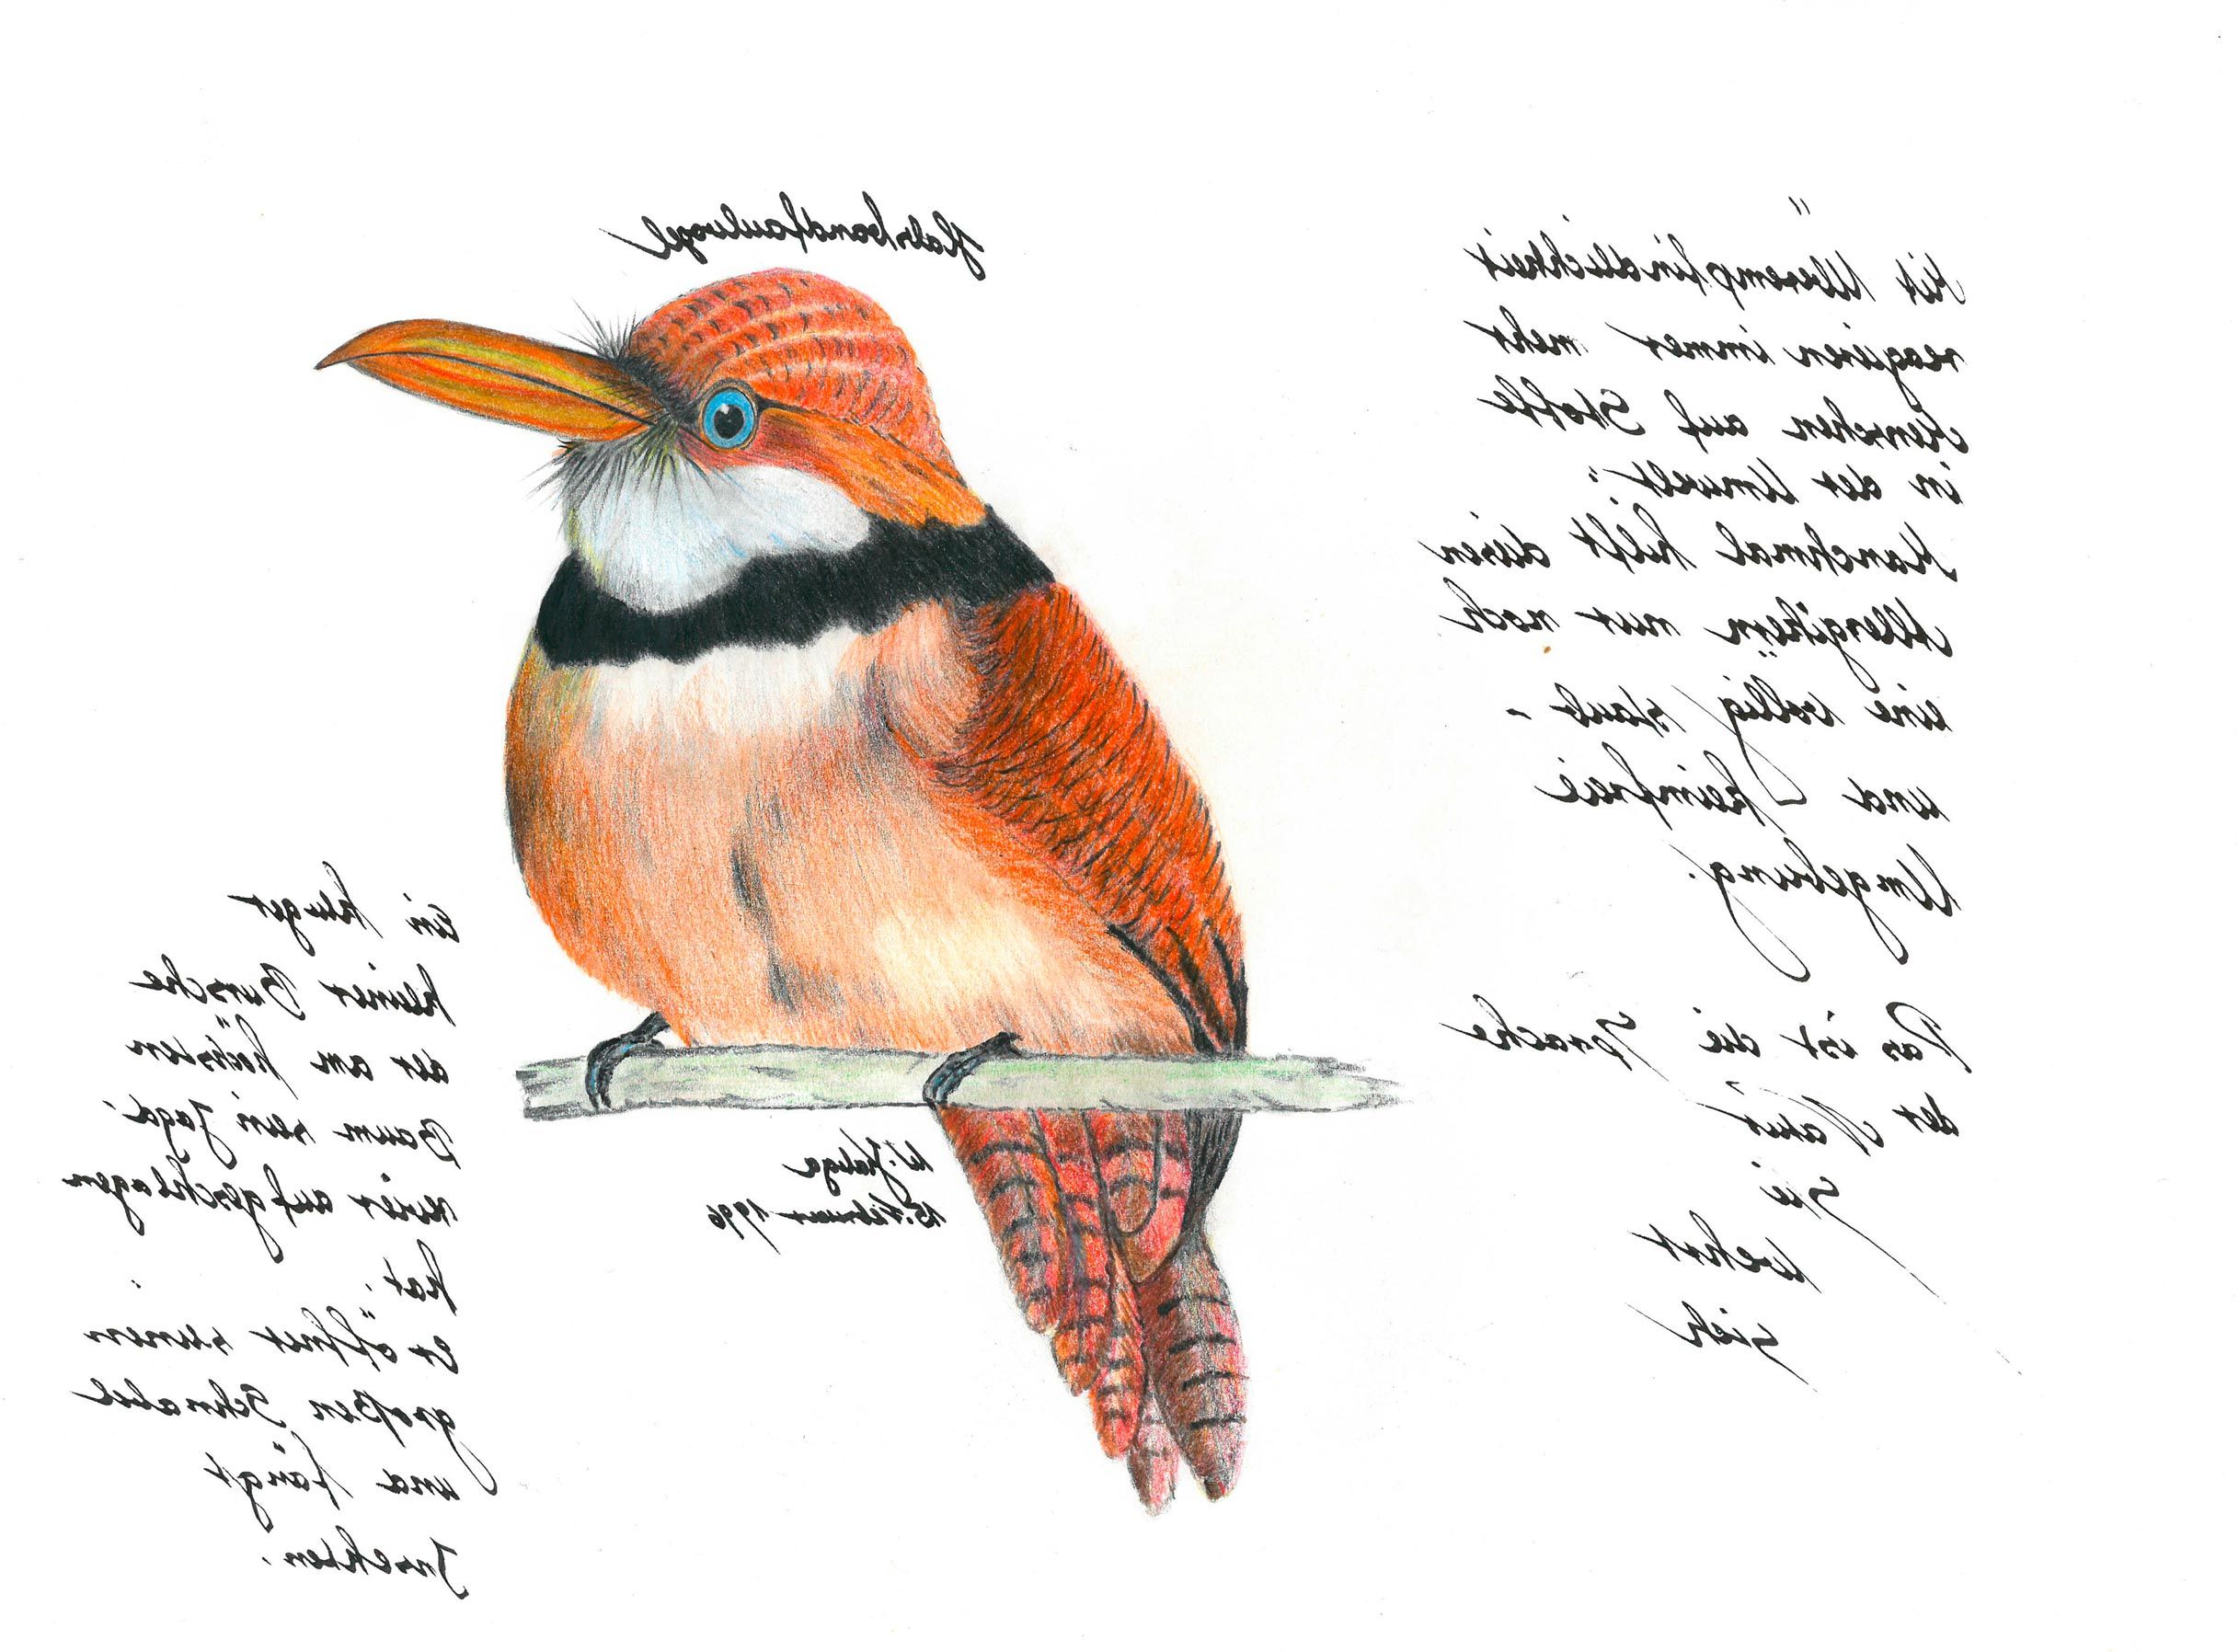 Halsbandfaulvogel
Mit Überempfindlichkeit
reagieren immer mehr
Menschen auf Stoffe
in der Umwelt".
Manchmal hilft diesen
Allergikern nur noch
eine völlig staub-
und keimfreie
Umgebung!
Das ist die Sprache
der Natur
Sie
wehrt
sich
W.
15. Februar 1996
Ein kluger
kleiner Bursche
der am höchsten
Baum sein Jagd-
revier aufgeschlagen
hat.
Er öffnet seinen
großen Schnabel
und fängt
Insekten.